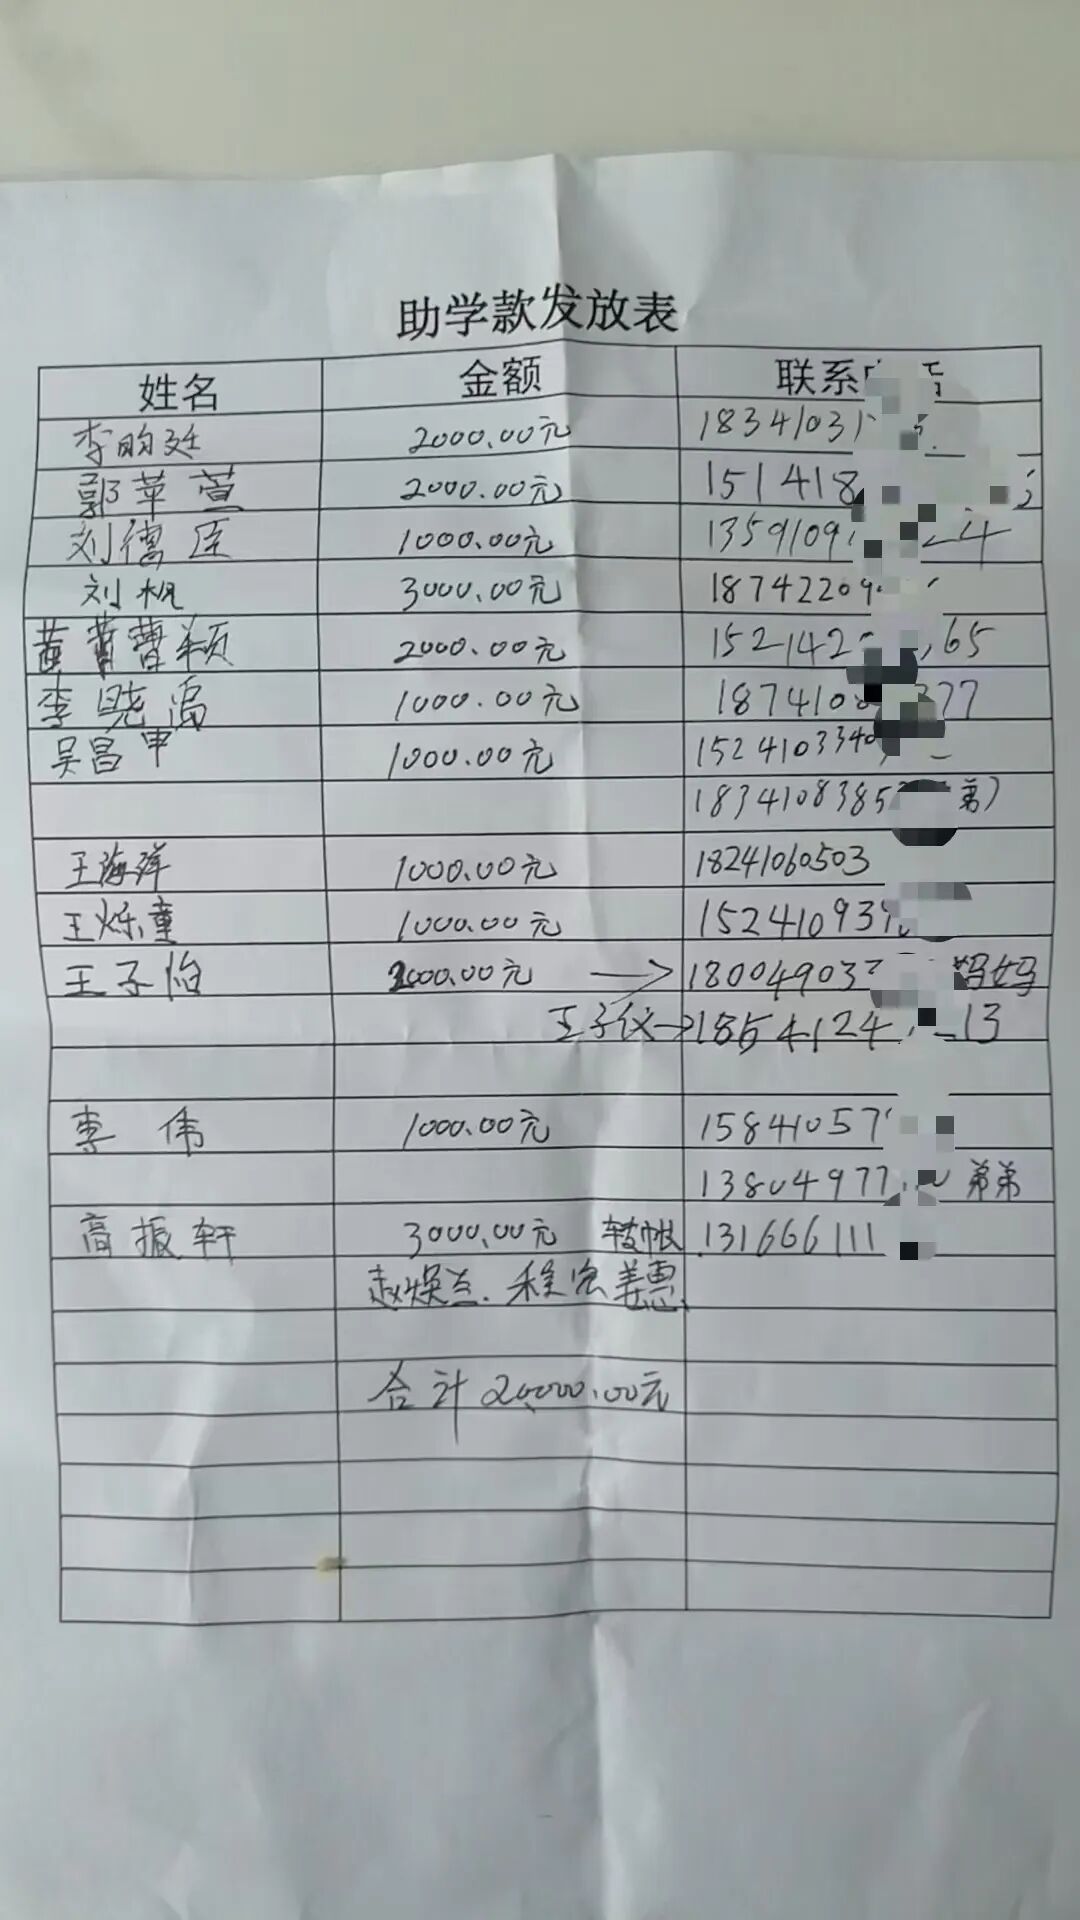 助学款发放表
姓名 金额 联系
李昀廷 2000.00元 18341031
郭苹萱 2000.00元 151418
刘德臣 1000.00元 1359109 24
刘枫 3000.00元 18742209
黄 曹颖 2000.00元 152142 65
李晓禹 1000.00元 1874108 377
吴昌申 1000.00元 1524103340
1834108385 弟)
王海洋 1000.00元 18241060503
王烁童 1000.00元 152410939
王子怡 2000.00元 → 18004903 妈妈
王子仪→1854124 13
李伟 1000.00元 15841057
138049777 弟弟
高振轩 3000.00元 转帐 131666111
赵焕兰.程宏姜惠
合计20000.00元